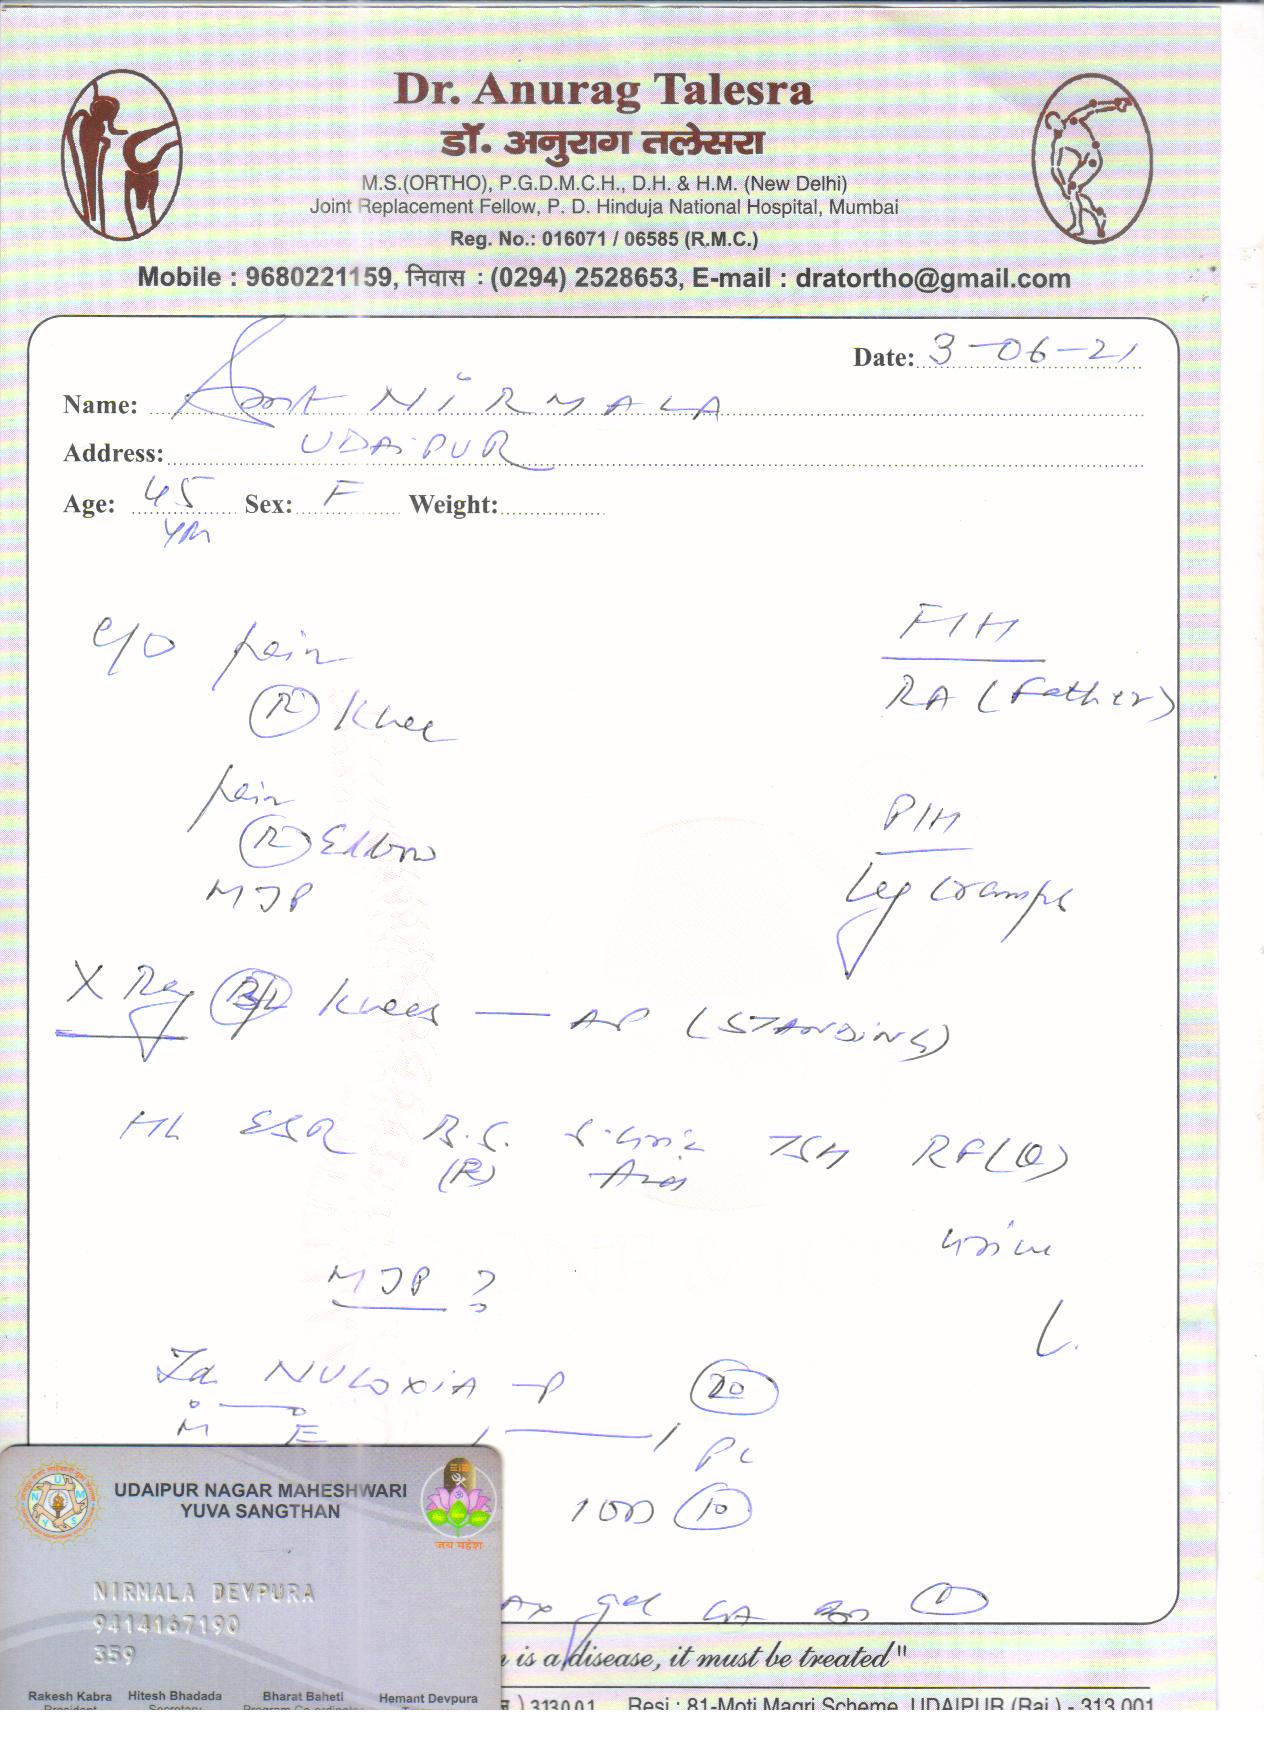 Dr. Anurag Talesra
डॉ. अनुराग तलेसरा
M.S.(ORTHO), P.G.D.M.C.H., D.H. & H.M. (New Delhi)
Joint Replacement Fellow, P. D. Hinduja National Hospital, Mumbai
Reg. No.: 016071 / 06585 (R.M.C.)
Mobile : 9680221159, निवास : (0294) 2528653, E-mail : dratortho@gmail.com
Date: 3-06-21
Name: Smt NIRMALA
Address: UDAIPUR
Age: 45 Sex: F Weight:
F/H
C/O pain
RA (Father)
(R) Knee
pain
P/H
(R) Elbow
MJP
Leg cramps
X Ray B/L Knees — AP (STANDING)
HL ESR B.S. S. Uric TSH RF(Q)
(R) Acid
urine
MJP ?
NULOXIA - P 20
M E
PC
10D 10
gel LA 1
UDAIPUR NAGAR MAHESHWARI
YUVA SANGTHAN
जय महेश
NIRMALA DEVPURA
9414167190
359
is a disease, it must be treated"
Rakesh Kabra Hitesh Bhadada Bharat Baheti Hemant Devpura
President Secretary
) 313001 Resi : 81-Moti Magri Scheme, UDAIPUR (Raj.) - 313 001